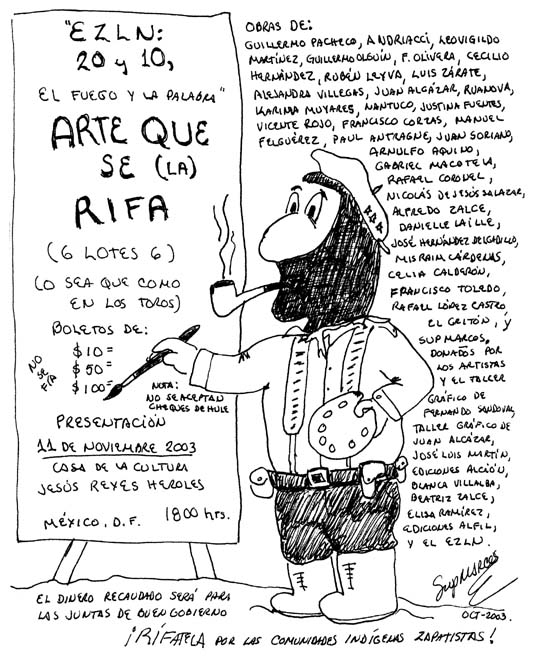 "EZLN:
20 y 10,
EL FUEGO Y LA PALABRA"
ARTE QUE
SE (LA)
RIFA
(6 LOTES 6)
(O SEA QUE COMO
EN LOS TOROS)
BOLETOS DE:
$10=
$50=
$100=
NO
SE
FÍA
NOTA:
NO SE ACEPTAN
CHEQUES DE HULE
PRESENTACIÓN
11 DE NOVIEMBRE 2003
CASA DE LA CULTURA
JESÚS REYES HEROLES
MÉXICO, D.F. 1800 hrs.
OBRAS DE:
GUILLERMO PACHECO, ANDRIACCI, LEOVIGILDO
MARTÍNEZ, GUILLERMO OLGUÍN, F. OLIVERA, CECILIO
HERNÁNDEZ, RUBÉN LEYVA, LUIS ZÁRATE,
ALEJANDRA VILLEGAS, JUAN ALCÁZAR, RUANOVA,
KARIMA MUYARES, NANTUCO, JUSTINA FUENTES,
VICENTE ROJO, FRANCISCO CORZAS, MANUEL
FELGUÉREZ, PAUL ANTRAGNE, JUAN SORIANO,
ARNULFO AQUINO,
GABRIEL MACOTELA,
RAFAEL CORONEL,
NICOLÁS DE JESÚS SALAZAR,
ALFREDO ZALCE,
DANIELLE LAILLE,
JOSÉ HERNÁNDEZ DELGADILLO,
MISRAIM CÁRDENAS,
CELIA CALDERÓN,
FRANCISCO TOLEDO,
RAFAEL LÓPEZ CASTRO
EL GRITÓN, Y
SUP MARCOS.
DONADOS POR
LOS ARTISTAS
Y EL TALLER
GRÁFICO DE
FERNANDO SANDOVAL,
TALLER GRÁFICO DE
JUAN ALCÁZAR,
JOSÉ LUIS MARTÍN,
EDICIONES ALCIÓN,
BLANCA VILLALBA,
BEATRIZ ZALCE,
ELISA RAMÍREZ,
EDICIONES ALFIL,
Y EL EZLN.
Sup Marcos
OCT-2003.
EL DINERO RECAUDADO SERÁ PARA
LAS JUNTAS DE BUEN GOBIERNO
¡RÍFATELA POR LAS COMUNIDADES INDÍGENAS ZAPATISTAS!